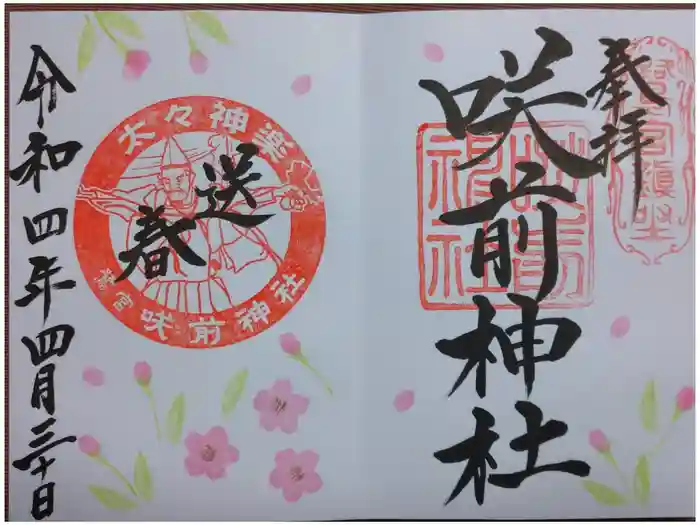 奉拝
咲前神社
咲前神社
太々神楽
送春
鷺宮 咲前神社
令和四年四月三十日